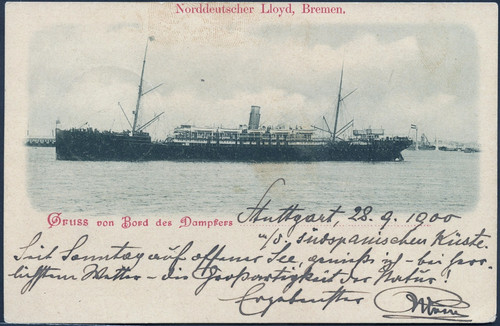 Norddeutscher Lloyd, Bremen.
Gruss von Bord des Dampfers Stuttgart, 28. 9. 1900
a/d. südspanischen Küste.
Seit Sonntag auf offener See, genieß ich - bei herr-
lichstem Wetter - die Großartigkeit der Natur!
Ergebenster